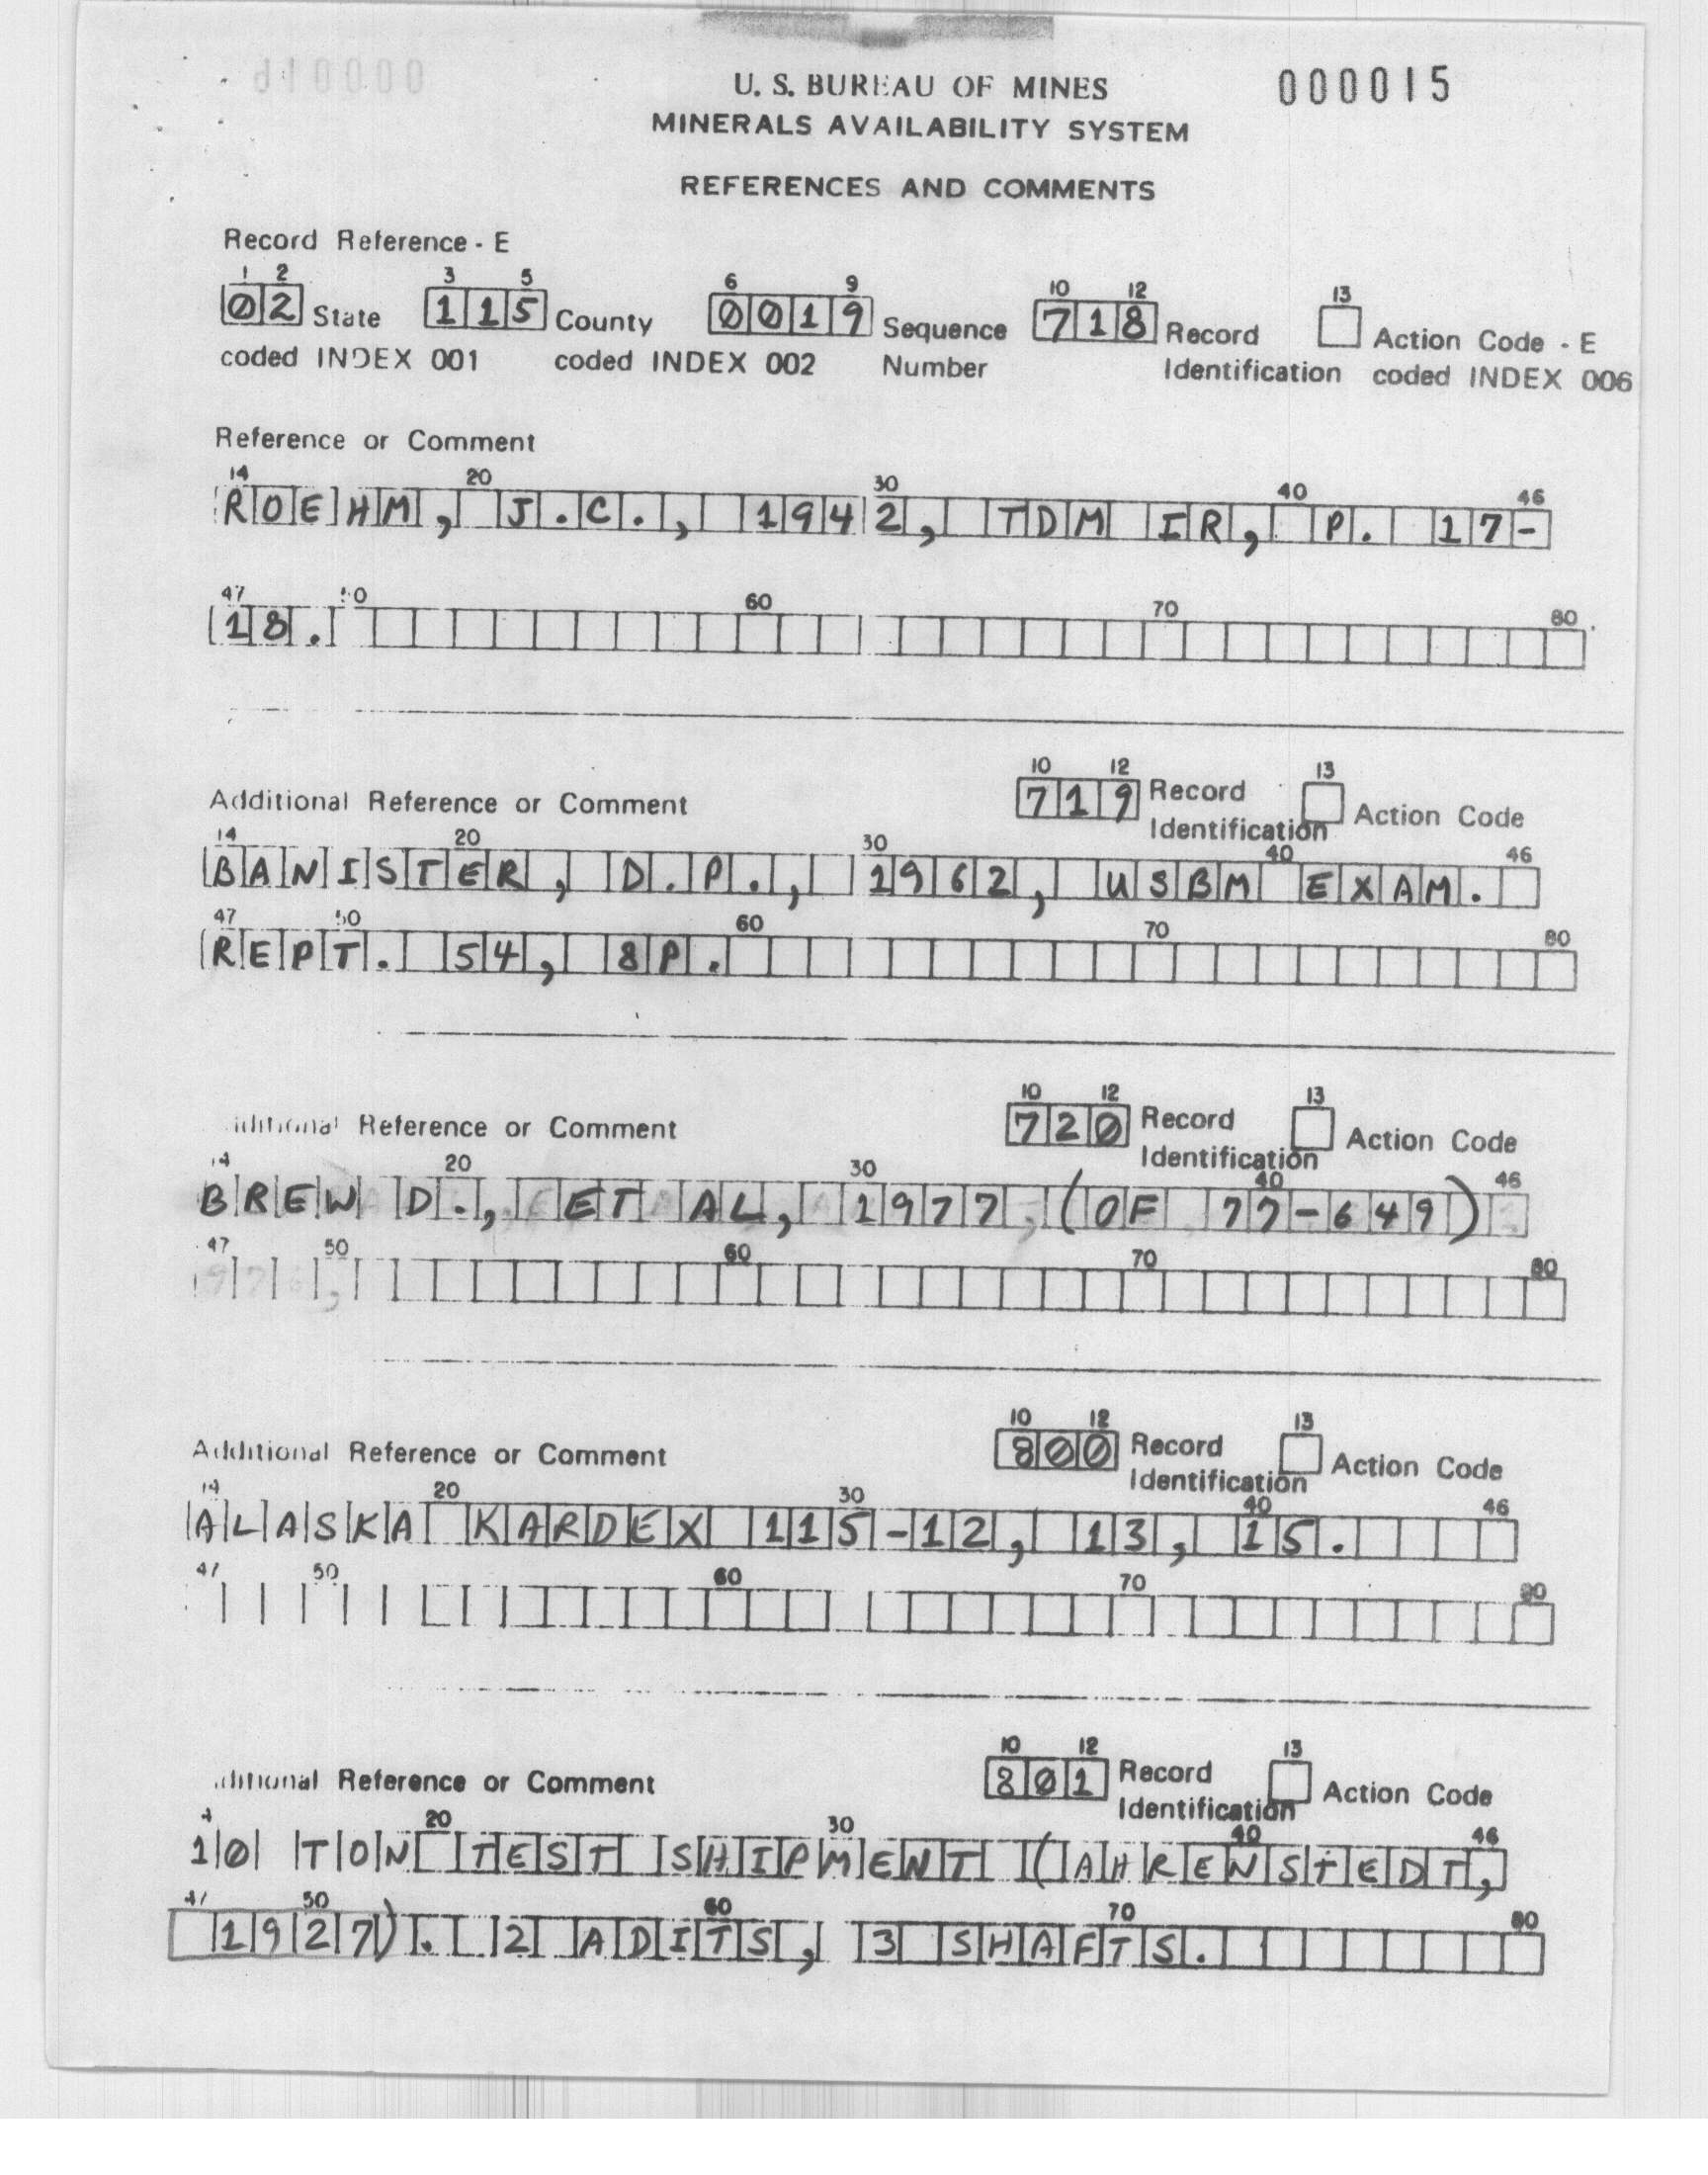 U. S. BUREAU OF MINES 000015
MINERALS AVAILABILITY SYSTEM
REFERENCES AND COMMENTS
Record Reference - E
1 2 3 5 6 9 10 12 13
02 State 115 County 0019 Sequence 718 Record Action Code - E
coded INDEX 001 coded INDEX 002 Number Identification coded INDEX 006
Reference or Comment
14 20 30 40 46
ROEHM, J.C., 1942, TDM IR, P. 17-
47 50 60 70 80
18.
10 12 13
Additional Reference or Comment 719 Record Identification Action Code
14 20 30 40 46
BANISTER, D.P., 1962, USBM EXAM.
47 50 60 70 80
REPT. 54, 8P.
10 12 13
Additional Reference or Comment 720 Record Identification Action Code
14 20 30 40 46
BREW D., ET AL, 1977 (OF 77-649)
47 50 60 70 80
10 12 13
Additional Reference or Comment 800 Record Identification Action Code
14 20 30 40 46
ALASKA KARDEX 115-12, 13, 15.
47 50 60 70 80
10 12 13
Additional Reference or Comment 801 Record Identification Action Code
20 30 40 46
10 TON TEST SHIPMENT (AHRENSTEDT,
47 50 60 70 80
1927). 2 ADITS, 3 SHAFTS.